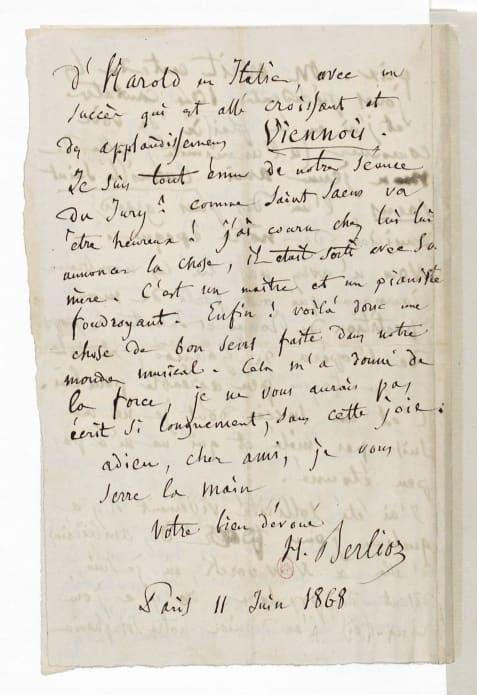 d'Harold en Italie, avec un
succès qui est allé croissant et
des applaudissemens Viennois.
Je suis tout ému de notre séance
du Jury! comme Saint Saens va
être heureux! j'ai couru chez lui lui
annoncer la chose, il était sorti avec sa
mère. C'est un maître et un pianiste
foudroyant. Enfin! voilà donc une
chose de bon sens faite dans notre
monde musical. Cela m'a donné de
la force, je ne vous aurais pas
écrit si longuement, sans cette joie.
adieu, cher ami, je vous
serre la main
votre bien dévoué
H. Berlioz
Paris 11 Juin 1868